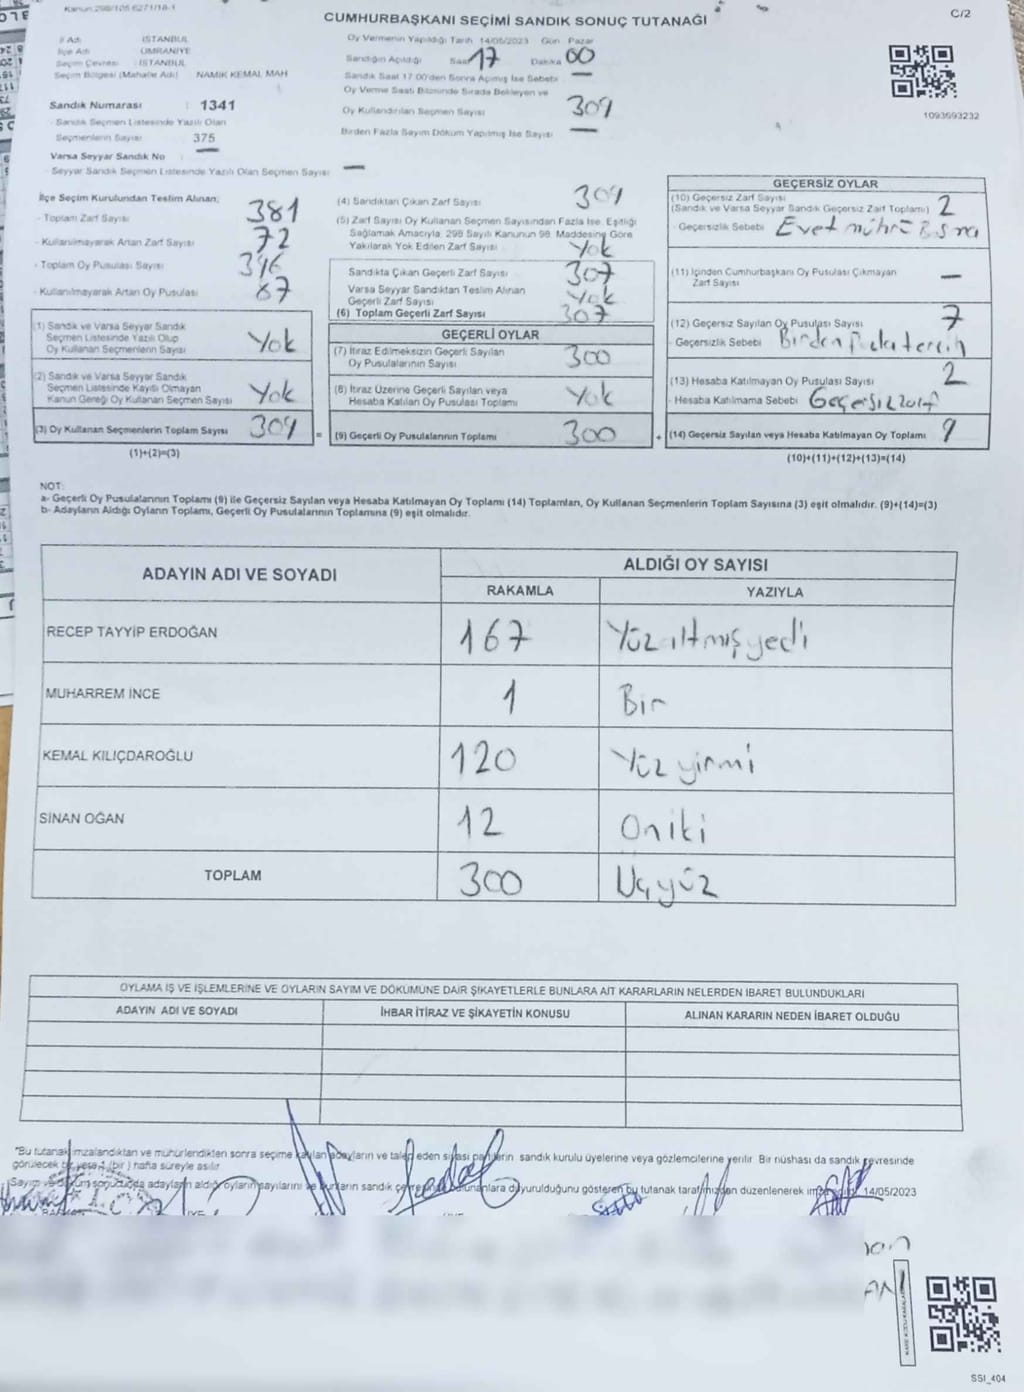 Kanun:298/105 6271/18-1
CUMHURBAŞKANI SEÇİMİ SANDIK SONUÇ TUTANAĞI
C/2
İl Adı : İSTANBUL
İlçe Adı : ÜMRANİYE
Seçim Çevresi : İSTANBUL
Seçim Bölgesi (Mahalle Adı) NAMIK KEMAL MAH
Sandık Numarası : 1341
- Sandık Seçmen Listesinde Yazılı Olan
Seçmenlerin Sayısı 375
Varsa Seyyar Sandık No : —
- Seyyar Sandık Seçmen Listesinde Yazılı Olan Seçmen Sayısı —
Oy Vermenin Yapıldığı Tarih 14/05/2023 Gün Pazar
Sandığın Açıldığı Saat 17 Dakika 00
Sandık Saat 17.00'den Sonra Açılmış İse Sebebi —
Oy Verme Saati Bitiminde Sırada Bekleyen ve
Oy Kullandırılan Seçmen Sayısı 309
Birden Fazla Sayım Döküm Yapılmış İse Sayısı —
1093693232
İlçe Seçim Kurulundan Teslim Alınan;
- Toplam Zarf Sayısı 381
- Kullanılmayarak Artan Zarf Sayısı 72
- Toplam Oy Pusulası Sayısı 396
- Kullanılmayarak Artan Oy Pusulası 87
(1) Sandık ve Varsa Seyyar Sandık
Seçmen Listesinde Yazılı Olup
Oy Kullanan Seçmenlerin Sayısı Yok
(2) Sandık ve Varsa Seyyar Sandık
Seçmen Listesinde Kaydı Olmayan
Kanun Gereği Oy Kullanan Seçmen Sayısı Yok
(3) Oy Kullanan Seçmenlerin Toplam Sayısı 309 =
(1)+(2)=(3)
(4) Sandıktan Çıkan Zarf Sayısı 309
(5) Zarf Sayısı Oy Kullanan Seçmen Sayısından Fazla İse, Eşitliği
Sağlamak Amacıyla, 298 Sayılı Kanunun 98. Maddesine Göre
Yakılarak Yok Edilen Zarf Sayısı Yok
Sandıkta Çıkan Geçerli Zarf Sayısı 307
Varsa Seyyar Sandıktan Teslim Alınan
Geçerli Zarf Sayısı Yok
(6) Toplam Geçerli Zarf Sayısı 307
GEÇERLİ OYLAR
(7) İtiraz Edilmeksizin Geçerli Sayılan
Oy Pusulalarının Sayısı 300
(8) İtiraz Üzerine Geçerli Sayılan veya
Hesaba Katılan Oy Pusulası Toplamı Yok
(9) Geçerli Oy Pusulalarının Toplamı 300 +
GEÇERSİZ OYLAR
(10) Geçersiz Zarf Sayısı
(Sandık ve Varsa Seyyar Sandık Geçersiz Zarf Toplamı) 2
- Geçersizlik Sebebi Evet mührü
(11) İçinden Cumhurbaşkanı Oy Pusulası Çıkmayan
Zarf Sayısı —
(12) Geçersiz Sayılan Oy Pusulası Sayısı 7
- Geçersizlik Sebebi Birden Fazla tercih
(13) Hesaba Katılmayan Oy Pusulası Sayısı 2
- Hesaba Katılmama Sebebi Geçersiz zarf
(14) Geçersiz Sayılan veya Hesaba Katılmayan Oy Toplamı 9
(10)+(11)+(12)+(13)=(14)
NOT:
a- Geçerli Oy Pusulalarının Toplamı (9) ile Geçersiz Sayılan veya Hesaba Katılmayan Oy Toplamı (14) Toplamları, Oy Kullanan Seçmenlerin Toplam Sayısına (3) eşit olmalıdır. (9)+(14)=(3)
b- Adayların Aldığı Oyların Toplamı, Geçerli Oy Pusulalarının Toplamına (9) eşit olmalıdır.
ADAYIN ADI VE SOYADI ALDIĞI OY SAYISI
RAKAMLA YAZIYLA
RECEP TAYYİP ERDOĞAN 167 Yüzaltmışyedi
MUHARREM İNCE 1 Bir
KEMAL KILIÇDAROĞLU 120 Yüzyirmi
SİNAN OĞAN 12 Oniki
TOPLAM 300 Üçyüz
OYLAMA İŞ VE İŞLEMLERİNE VE OYLARIN SAYIM VE DÖKÜMÜNE DAİR ŞİKAYETLERLE BUNLARA AİT KARARLARIN NELERDEN İBARET BULUNDUKLARI
ADAYIN ADI VE SOYADI İHBAR İTİRAZ VE ŞİKAYETİN KONUSU ALINAN KARARIN NEDEN İBARET OLDUĞU
"Bu tutanak imzalandıktan ve mühürlendikten sonra seçime katılan adayların ve talep eden siyasi partilerin sandık kurulu üyelerine veya gözlemcilerine verilir. Bir nüshası da sandık çevresinde
görülecek bir yere 1 (bir) hafta süreyle asılır.
Sayım ve döküm sonucunda adayların aldığı oyların sayılarını ve bunların sandık çevresinde bulunanlara duyurulduğunu gösteren bu tutanak tarafımızdan düzenlenerek imzalandı. 14/05/2023
SSI_404